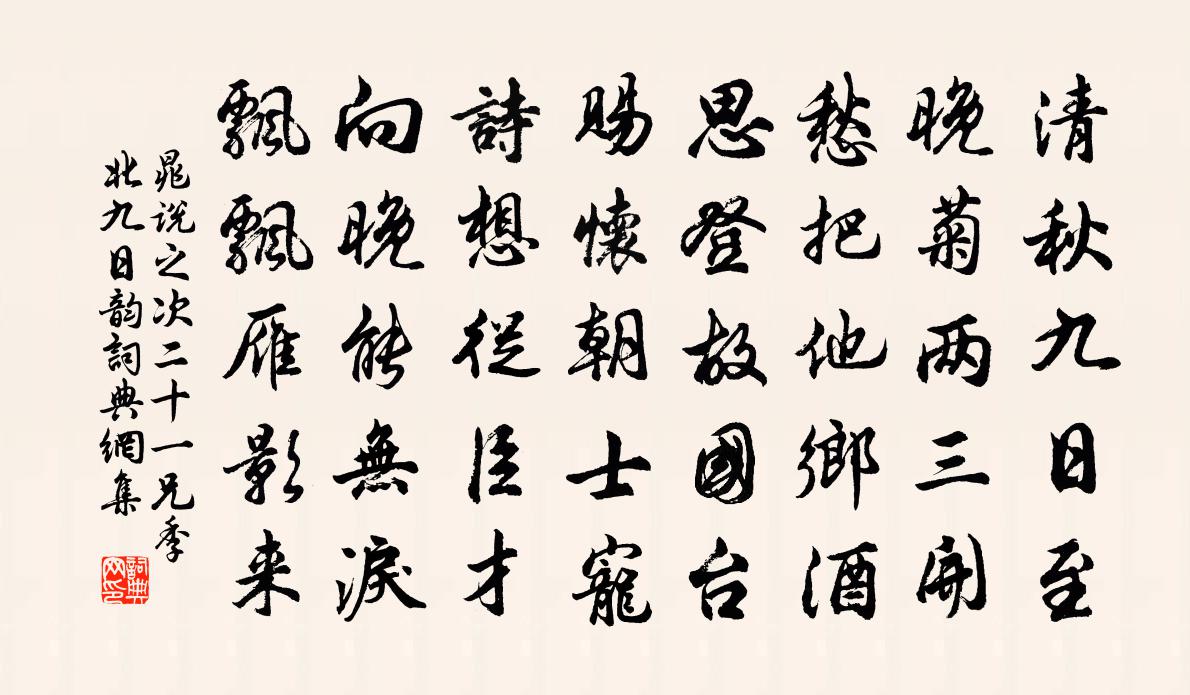 清秋九日至
晚菊两三開
愁把他鄉酒
思登故國台
賜懷朝士寵
詩想從臣才
向晚能無淚
飄飄雁影来
晁说之次二十一兄季
北九日韵詞典網集
詞典
网印